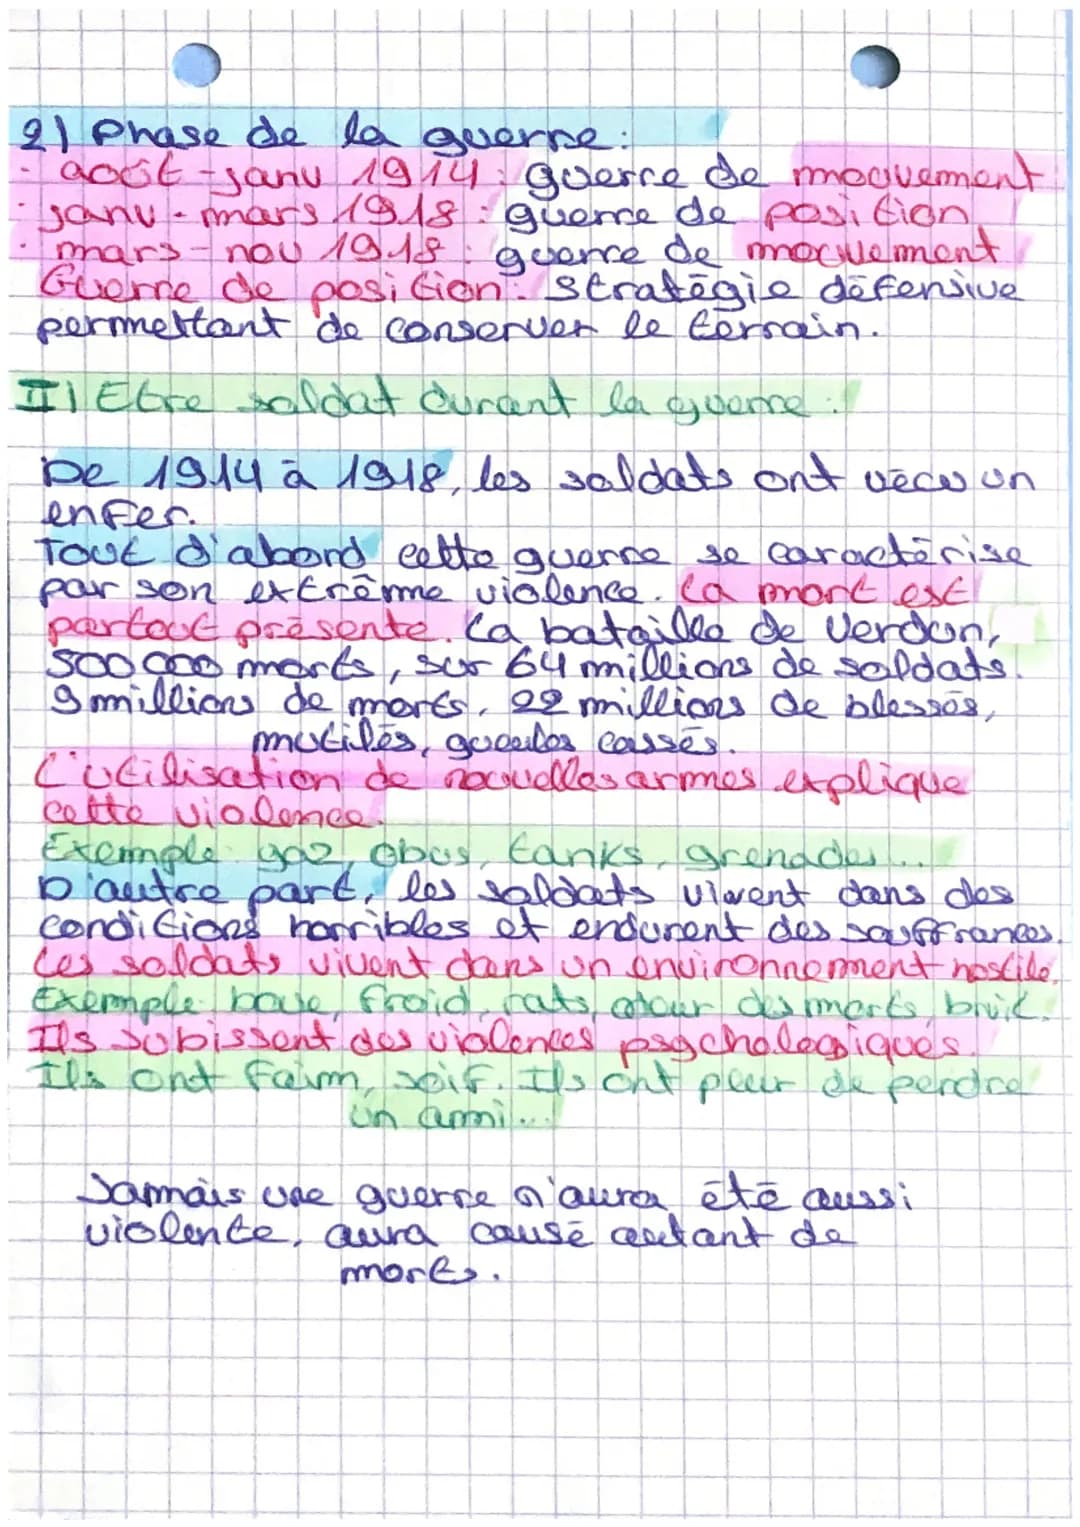 2) Phase de la guerre :
· août - janv 1914 : guerre de mouvement
· janv - mars 1918 : guerre de position
· mars - nov 1918 : guerre de mouvement
Guerre de position : stratégie défensive
permettant de conserver le terrain.
II) Etre soldat durant la guerre :
De 1914 à 1918, les soldats ont vécu un
enfer.
Tout d'abord cette guerre se caractérise
par son extrême violence. La mort est
partout présente. La bataille de Verdun,
500 000 morts, sur 64 millions de soldats.
9 millions de morts, 22 millions de blessés,
mutilés, gueules cassés.
L'utilisation de nouvelles armes explique
cette violence.
Exemple : gaz, obus, tanks, grenades...
D'autre part, les soldats vivent dans des
conditions horribles et endurent des souffrances.
Les soldats vivent dans un environnement hostile.
Exemple : boue, froid, rats, odeur des morts, bruit.
Ils subissent des violences psychologiques.
Ils ont faim, soif. Ils ont peur de perdre
un ami...
Jamais une guerre n'aura été aussi
violente, aura causé autant de
morts.